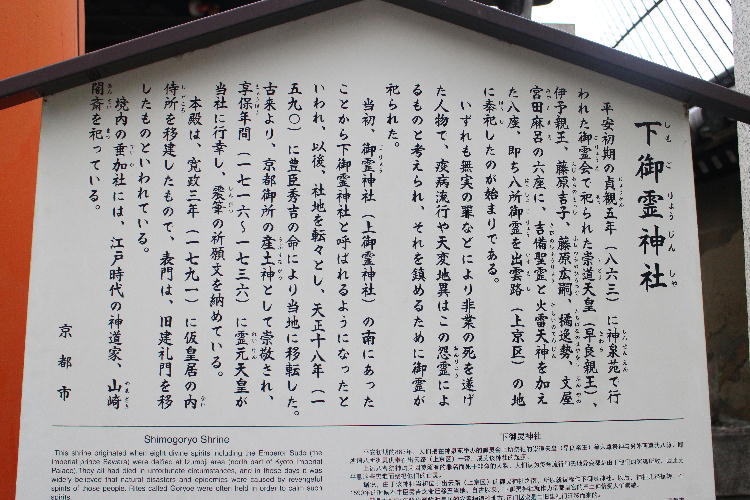 下御霊神社
しもごりょうじんしゃ
平安初期の貞観五年（八六三）に神泉苑で行
われた御霊会で祀られた崇道天皇（早良親王）、
伊予親王、藤原吉子、藤原広嗣、橘逸勢、文屋
宮田麻呂の六座に、吉備聖霊と火雷天神を加え
た八座、即ち八所御霊を出雲路（上京区）の地
に奉祀したのが始まりである。
いずれも無実の罪などにより非業の死を遂げ
た人物で、疫病流行や天変地異はこの怨霊によ
るものと考えられ、それを鎮めるために御霊が
祀られた。
当初、御霊神社（上御霊神社）の南にあった
ことから下御霊神社と呼ばれるようになったと
いわれ、以後、社地を転々とし、天正十八年（一
五九〇）に豊臣秀吉の命により当地に移転した。
古来より、京都御所の産土神として崇敬され、
享保年間（一七一六～一七三六）に霊元天皇が
当社に行幸し、震筆の祈願文を納めている。
本殿は、寛政三年（一七九一）に仮皇居の内
侍所を移建したもので、表門は、旧建礼門を移
したものといわれている。
境内の垂加社には、江戸時代の神道家、山崎
闇斎を祀っている。
京都市
Shimogoryo Shrine
This shrine originated when eight divine spirits including the Emperor Sudo (the
Imperial prince Sawara) were deified at Izumoji area (north part of Kyoto Imperial
Palace). They all had died in unfortunate circumstances, and in those days it was
widely believed that natural disasters and epidemics were caused by revengeful
spirits of those people. Rites called Goryoe were often held in order to calm such
spirits.
下御灵神社